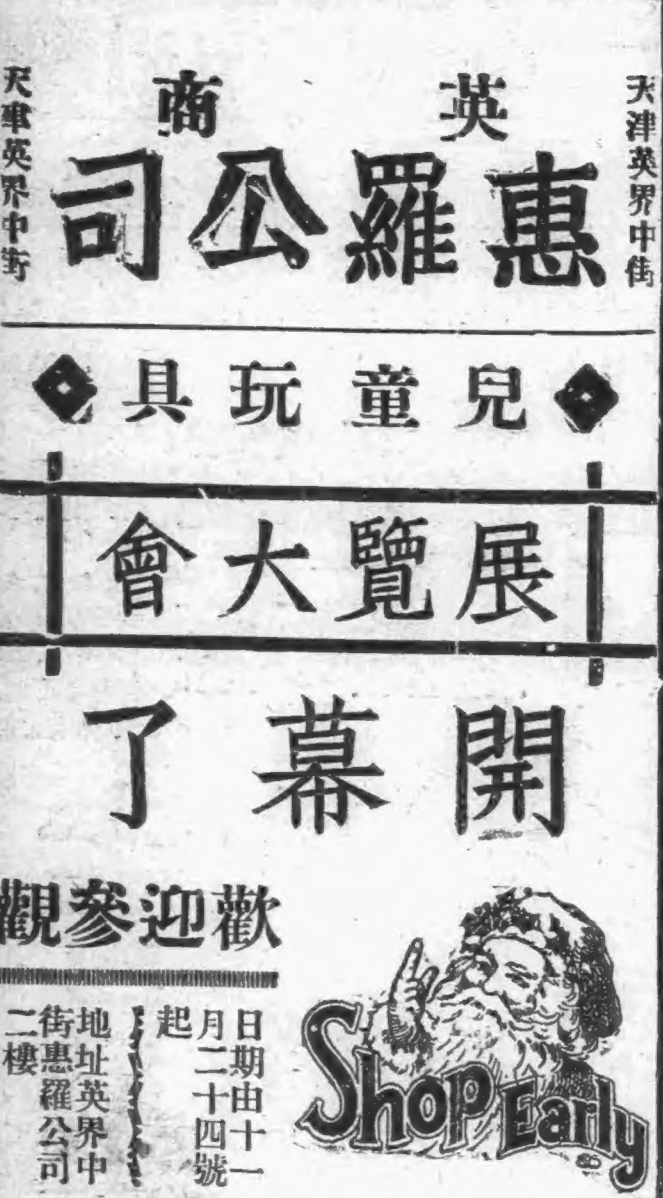 天津英界中街
英商
惠羅公司
天津英界中街
兒童玩具
展覽大會
開幕了
歡迎參觀
日期由十一
月二十四號
起
地址英界中
街惠羅公司
二樓
Shop Early